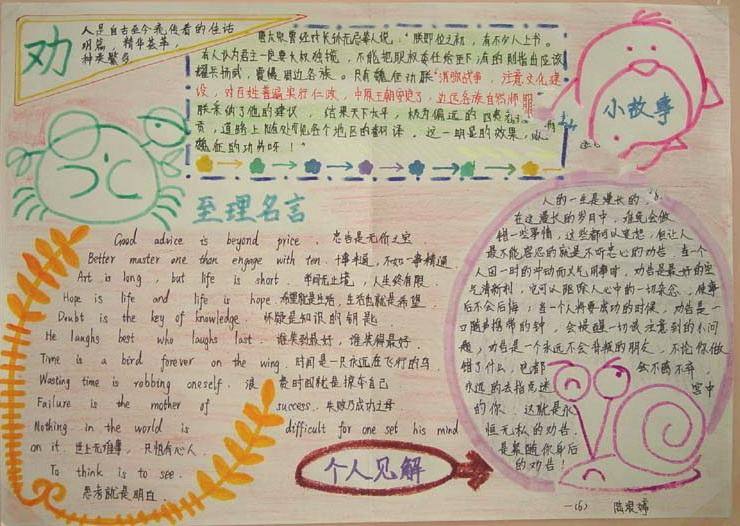 劝
人是自古至今流传着的佳话
明篇，精华荟萃，
种类繁多
唐太宗曾经对长孙无忌等人说："朕即位之初，有不少人上书。
有人认为君主一定要大权独揽，不能把职权委任给臣下；有的则指出应该
耀兵扬武，震慑周边各族。只有魏征劝朕"消除战事，注意文化建
设，对百姓普遍实行仁政，中原王朝安定了，边远各族自然归顺
朕采纳了他的建议，结果天下太平，极为偏远的
贡，道路上随处可见各个地区的翻译。这一切是的效果，
魏征的功劳呀！"
小故事
至理名言
Good advice is beyond price. 忠告是无价之宝
Better master one than engage with ten. 十事半通，不如一事精通
Art is long, but life is short. 学问无止境，人生终有限.
Hope is life and life is hope 希望就是生活，生活也就是希望
Doubt is the key of knowledge. 怀疑是知识的钥匙
He laughs best who laughs last. 谁笑到最好，谁笑得最好.
Time is a bird forever on the wing. 时间是一只永远在飞行的鸟
Wasting time is robbing oneself. 浪费时间就是掠夺自己
Failure is the mother of success. 失败乃成功之母
Nothing in the world is difficult for one set his mind
on it. 世上无难事，只怕有心人.
To think is to see.
思考就是明白.
人的一生是漫长的，
在这漫长的岁月中，难免会做
错一些事情，这些都可以宽恕，但让人
最不能容忍的就是不听忠心的劝告，当一个
人因一时的冲动而义气用事时，劝告是最好的空
气清新剂，它可以驱除人心中的一切杂念，使事
后不会后悔；当一个人将要成功的时候，劝告是一
口随声携带的钟，会提醒一切没注意到的小问
题；劝告是一个永远不会背叛的朋友，不论你做
错了什么，它都会不离不弃，
永远的去指点迷宫中
的你，这就是永
恒无私的劝告，
是紧随你身后
的劝告！
个人见解
一（6）